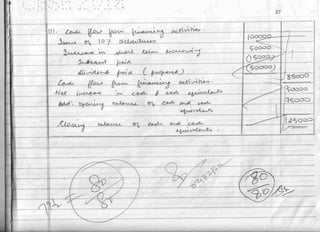 27
III. Cash flow from financing activities.
Issue of 10% debentures 100000
Increase in short term borrowing 50000
Interest paid (15000)
Dividend paid (proposed) (50000)
Cash flow from financing activities. 85000
Net increase in cash & cash equivalents 50000
Add: opening balance of cash and cash equivalents 75000
Closing balance of cash and cash equivalents. 125000
80
80
80
80
80